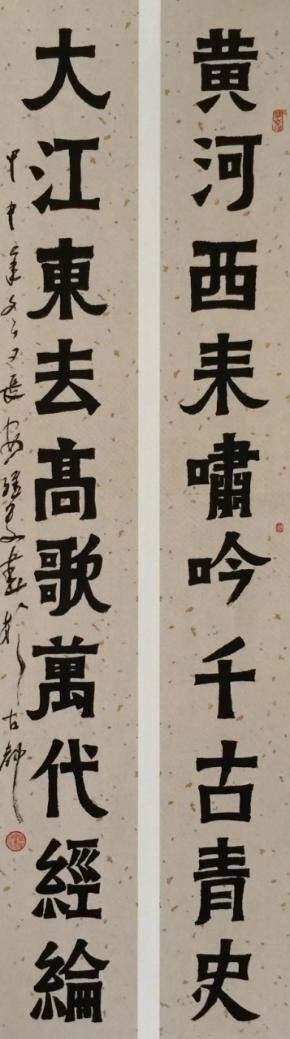 黄河西来啸吟千古青史
大江東去高歌萬代經綸
甲申年
長安
書於
古都